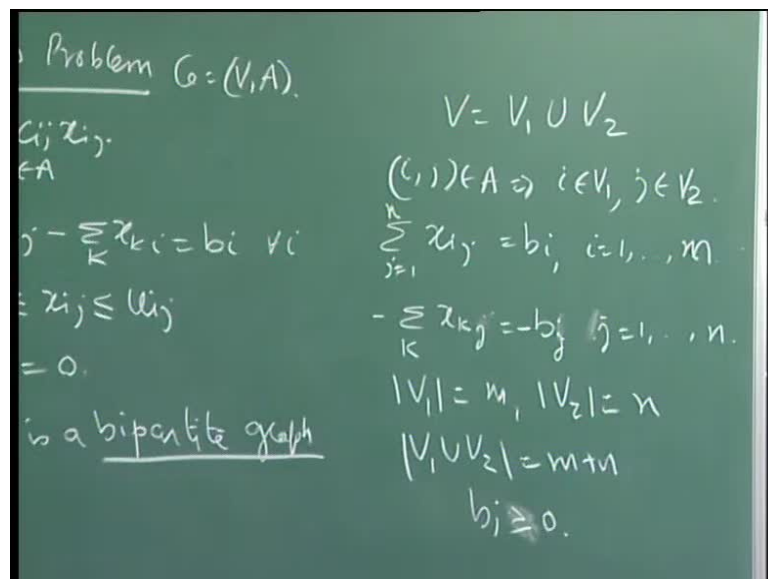 Problem G = (V, A).
Cij xij.
∈A
j - Σ xki = bi ∀i
K
≤ xij ≤ uij
= 0.
is a bipartite graph
V = V1 ∪ V2
(i, j) ∈ A ⇒ i ∈ V1, j ∈ V2.
n
Σ xij = bi, i = 1, .., m.
j=1
- Σ xkj = -bj j = 1, .., n.
K
|V1| = m, |V2| = n
|V1 ∪ V2| = m+n
bj ≥ 0.